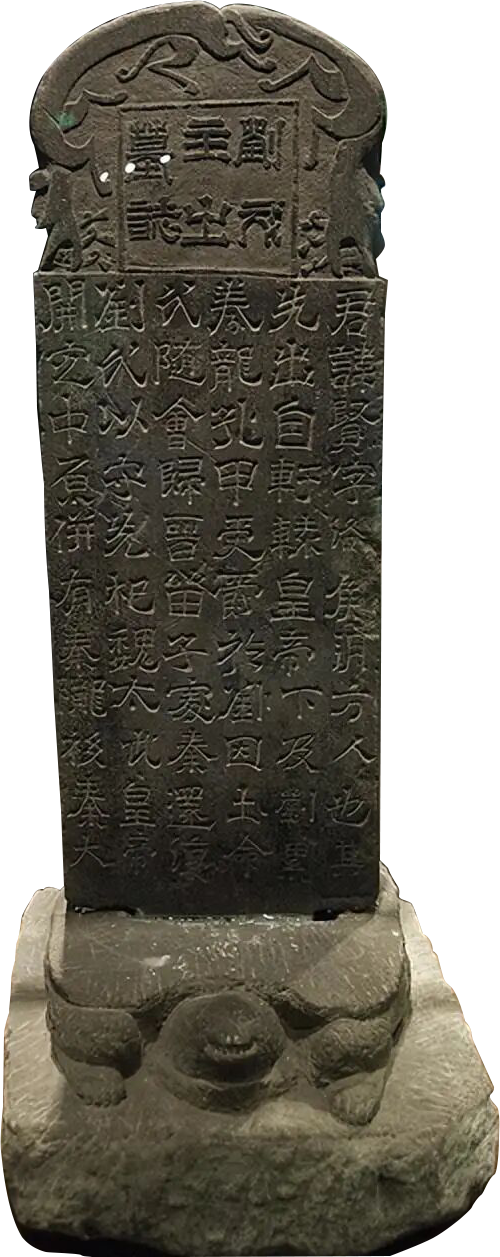 劉戍
主之
墓誌
君諱賢字洛侯朔方人也其
先出自軒轅皇帝下及劉累
豢龍孔甲受爵於劉因土命
氏随會歸晉留子處秦還復
劉氏以守先祀魏太武皇帝
開定中原併有秦隴移秦大